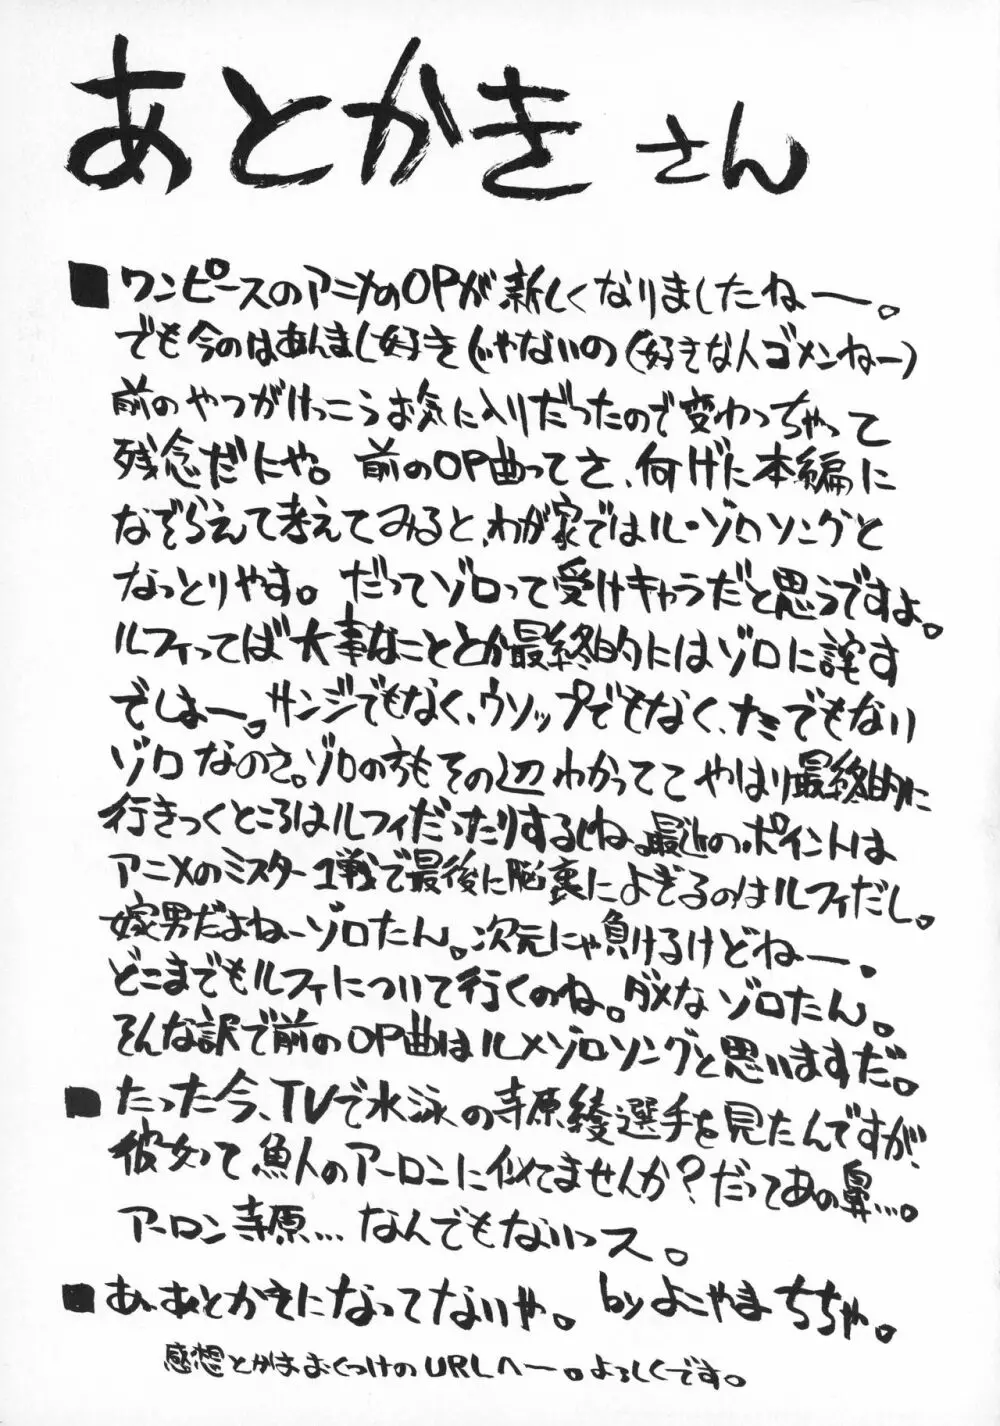 あとかきさん
■ワンピースのアニメのOPが新しくなりましたねー。
でも今のはあんまし好きじゃないの(好きな人ゴメンねー)
前のやつがけっこうお気に入りだったので変わっちゃって
残念だにゃ。前のOP曲ってさ、何げに本編に
なぞらえて考えてみると、わが家ではル・ゾロソングと
なっとりやす。だってゾロって受けキャラだと思うですよ。
ルフィってば大事なこととか最終的にはゾロに託す
でしょー。サンジでもなく、ウソップでもなく、ナミでもない
ゾロなのさ。ゾロの方もその辺わかっててやはり最終的に
行きつくところはルフィだったりするしね。最近のポイントは
アニメのミスター1戦で最後に脳裏によぎるのはルフィだし。
嫁男だよねーゾロたん。次元にゃ負けるけどねー。
どこまでもルフィについて行くのね。ダメなゾロたん。
そんな訳で前のOP曲はル×ゾロソングと思いますだ。
■たった今、TVで水泳の寺原綾選手を見たんですが、
彼女って魚人のアーロンに似てませんか?だってあの鼻…。
アーロン寺原…なんでもないっス。
■あ、あとかきになってないや。byよこやまちちゃ。
感想とかはおくつけのURLへー。よろしくです。